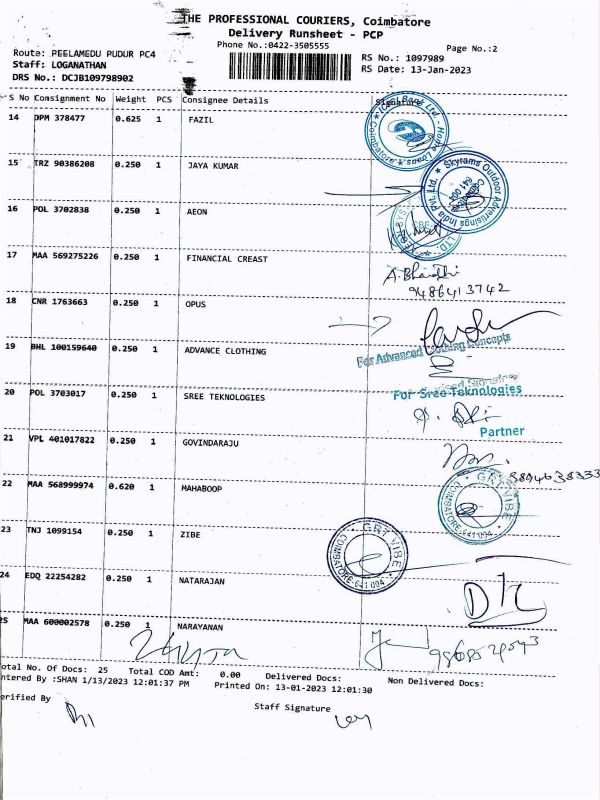 THE PROFESSIONAL COURIERS, Coimbatore
Delivery Runsheet - PCP
Phone No.:0422-3505555
Page No.:2
Route: PEELAMEDU PUDUR PC4
Staff: LOGANATHAN
DRS No.: DCJB109798902
RS No.: 1097989
RS Date: 13-Jan-2023
S No Consignment No Weight PCS Consignee Details Signature
14 DPM 378477 0.625 1 FAZIL
15 TRZ 90386208 0.250 1 JAYA KUMAR
Skyrams Outdoor Advertisings India Pvt. Ltd.
Coimbatore 641 004
16 POL 3702838 0.250 1 AEON
17 MAA 569275226 0.250 1 FINANCIAL CREAST
A. Bharathi
9486413742
18 CNR 1763663 0.250 1 OPUS
19 BHL 100159640 0.250 1 ADVANCE CLOTHING
For Advanced Clothing Concepts
20 POL 3703017 0.250 1 SREE TEKNOLOGIES
For Sree Teknologies
Partner
21 VPL 401017822 0.250 1 GOVINDARAJU
22 MAA 568999974 0.620 1 MAHABOOP
GRT VIBE
COIMBATORE-641 004
23 TNJ 1099154 0.250 1 ZIBE
GRT VIBE
COIMBATORE-641 004
24 EDQ 22254282 0.250 1 NATARAJAN
25 MAA 600002578 0.250 1 NARAYANAN
Total No. Of Docs: 25 Total COD Amt: 0.00 Delivered Docs: Non Delivered Docs:
Entered By :SHAN 1/13/2023 12:01:37 PM Printed On: 13-01-2023 12:01:30
Verified By
Staff Signature